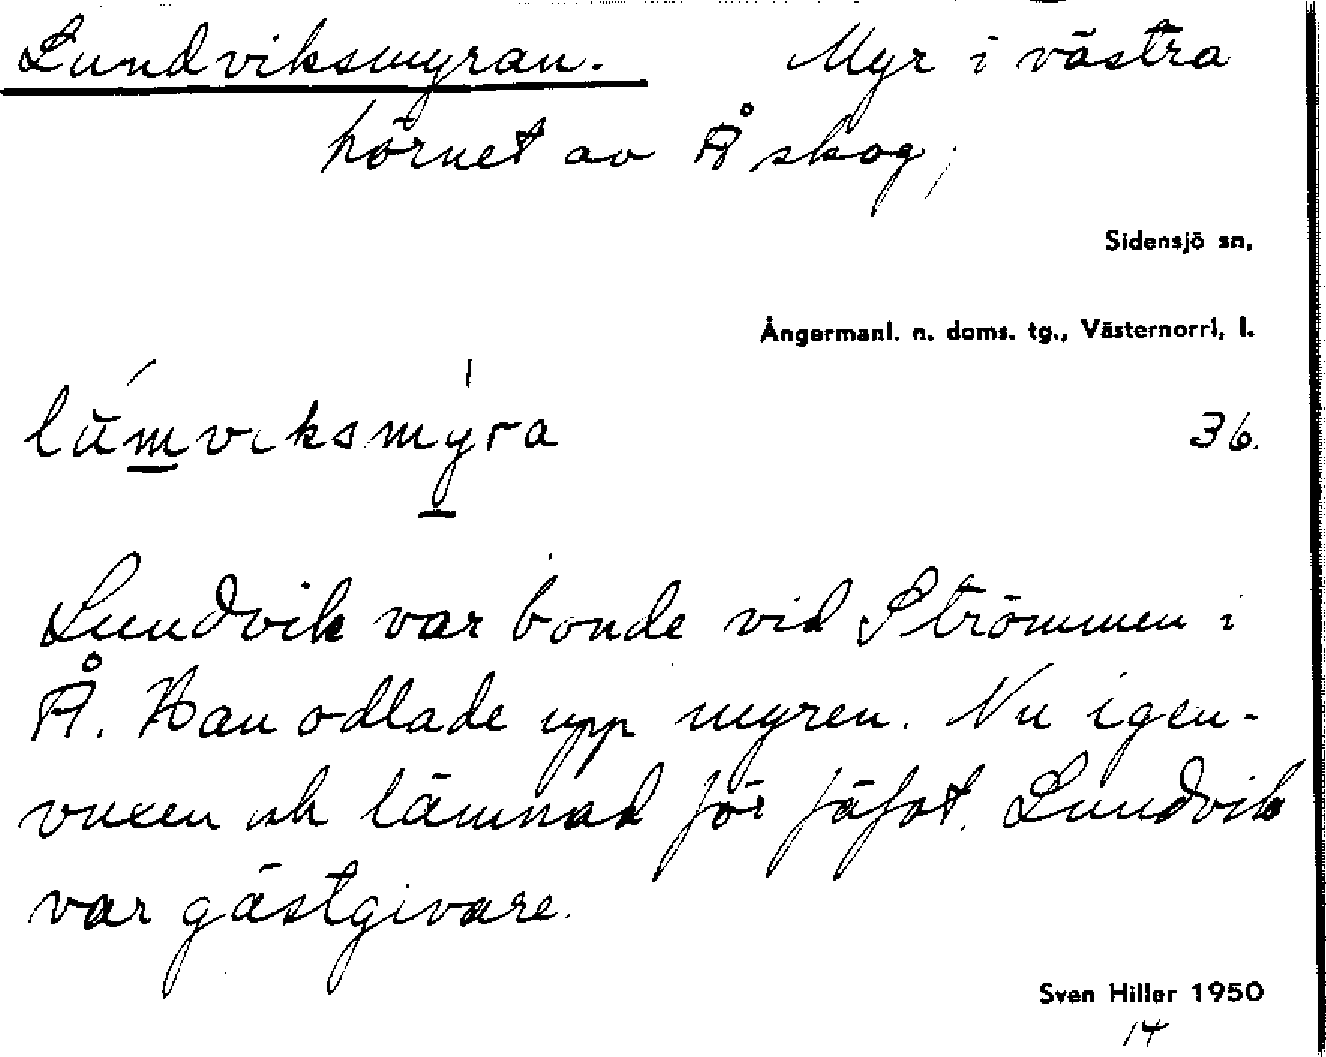 Lundviksmyran. Myr i västra
hörnet av Å skog,
Sidensjö sn,
Ångermanl. n. doms. tg., Västernorrl, l.
lŭmviksmyra
36.
Lundvik var bonde vid Strömmen i
Å. Han odlade upp myren. Nu igen-
vuxen och lämnad för fäfot. Lundvik
var gästgivare.
Sven Hiller 1950
14